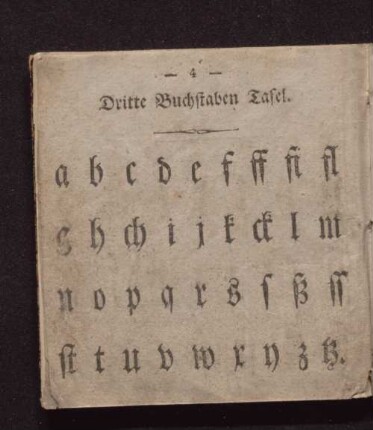 — 4 —
Dritte Buchſtaben Tafel.
a b c d e f ff fi fl
g h ch i j k ck l m
n o p q r s ſ ß ſſ
ſt t u v w x y z tz.